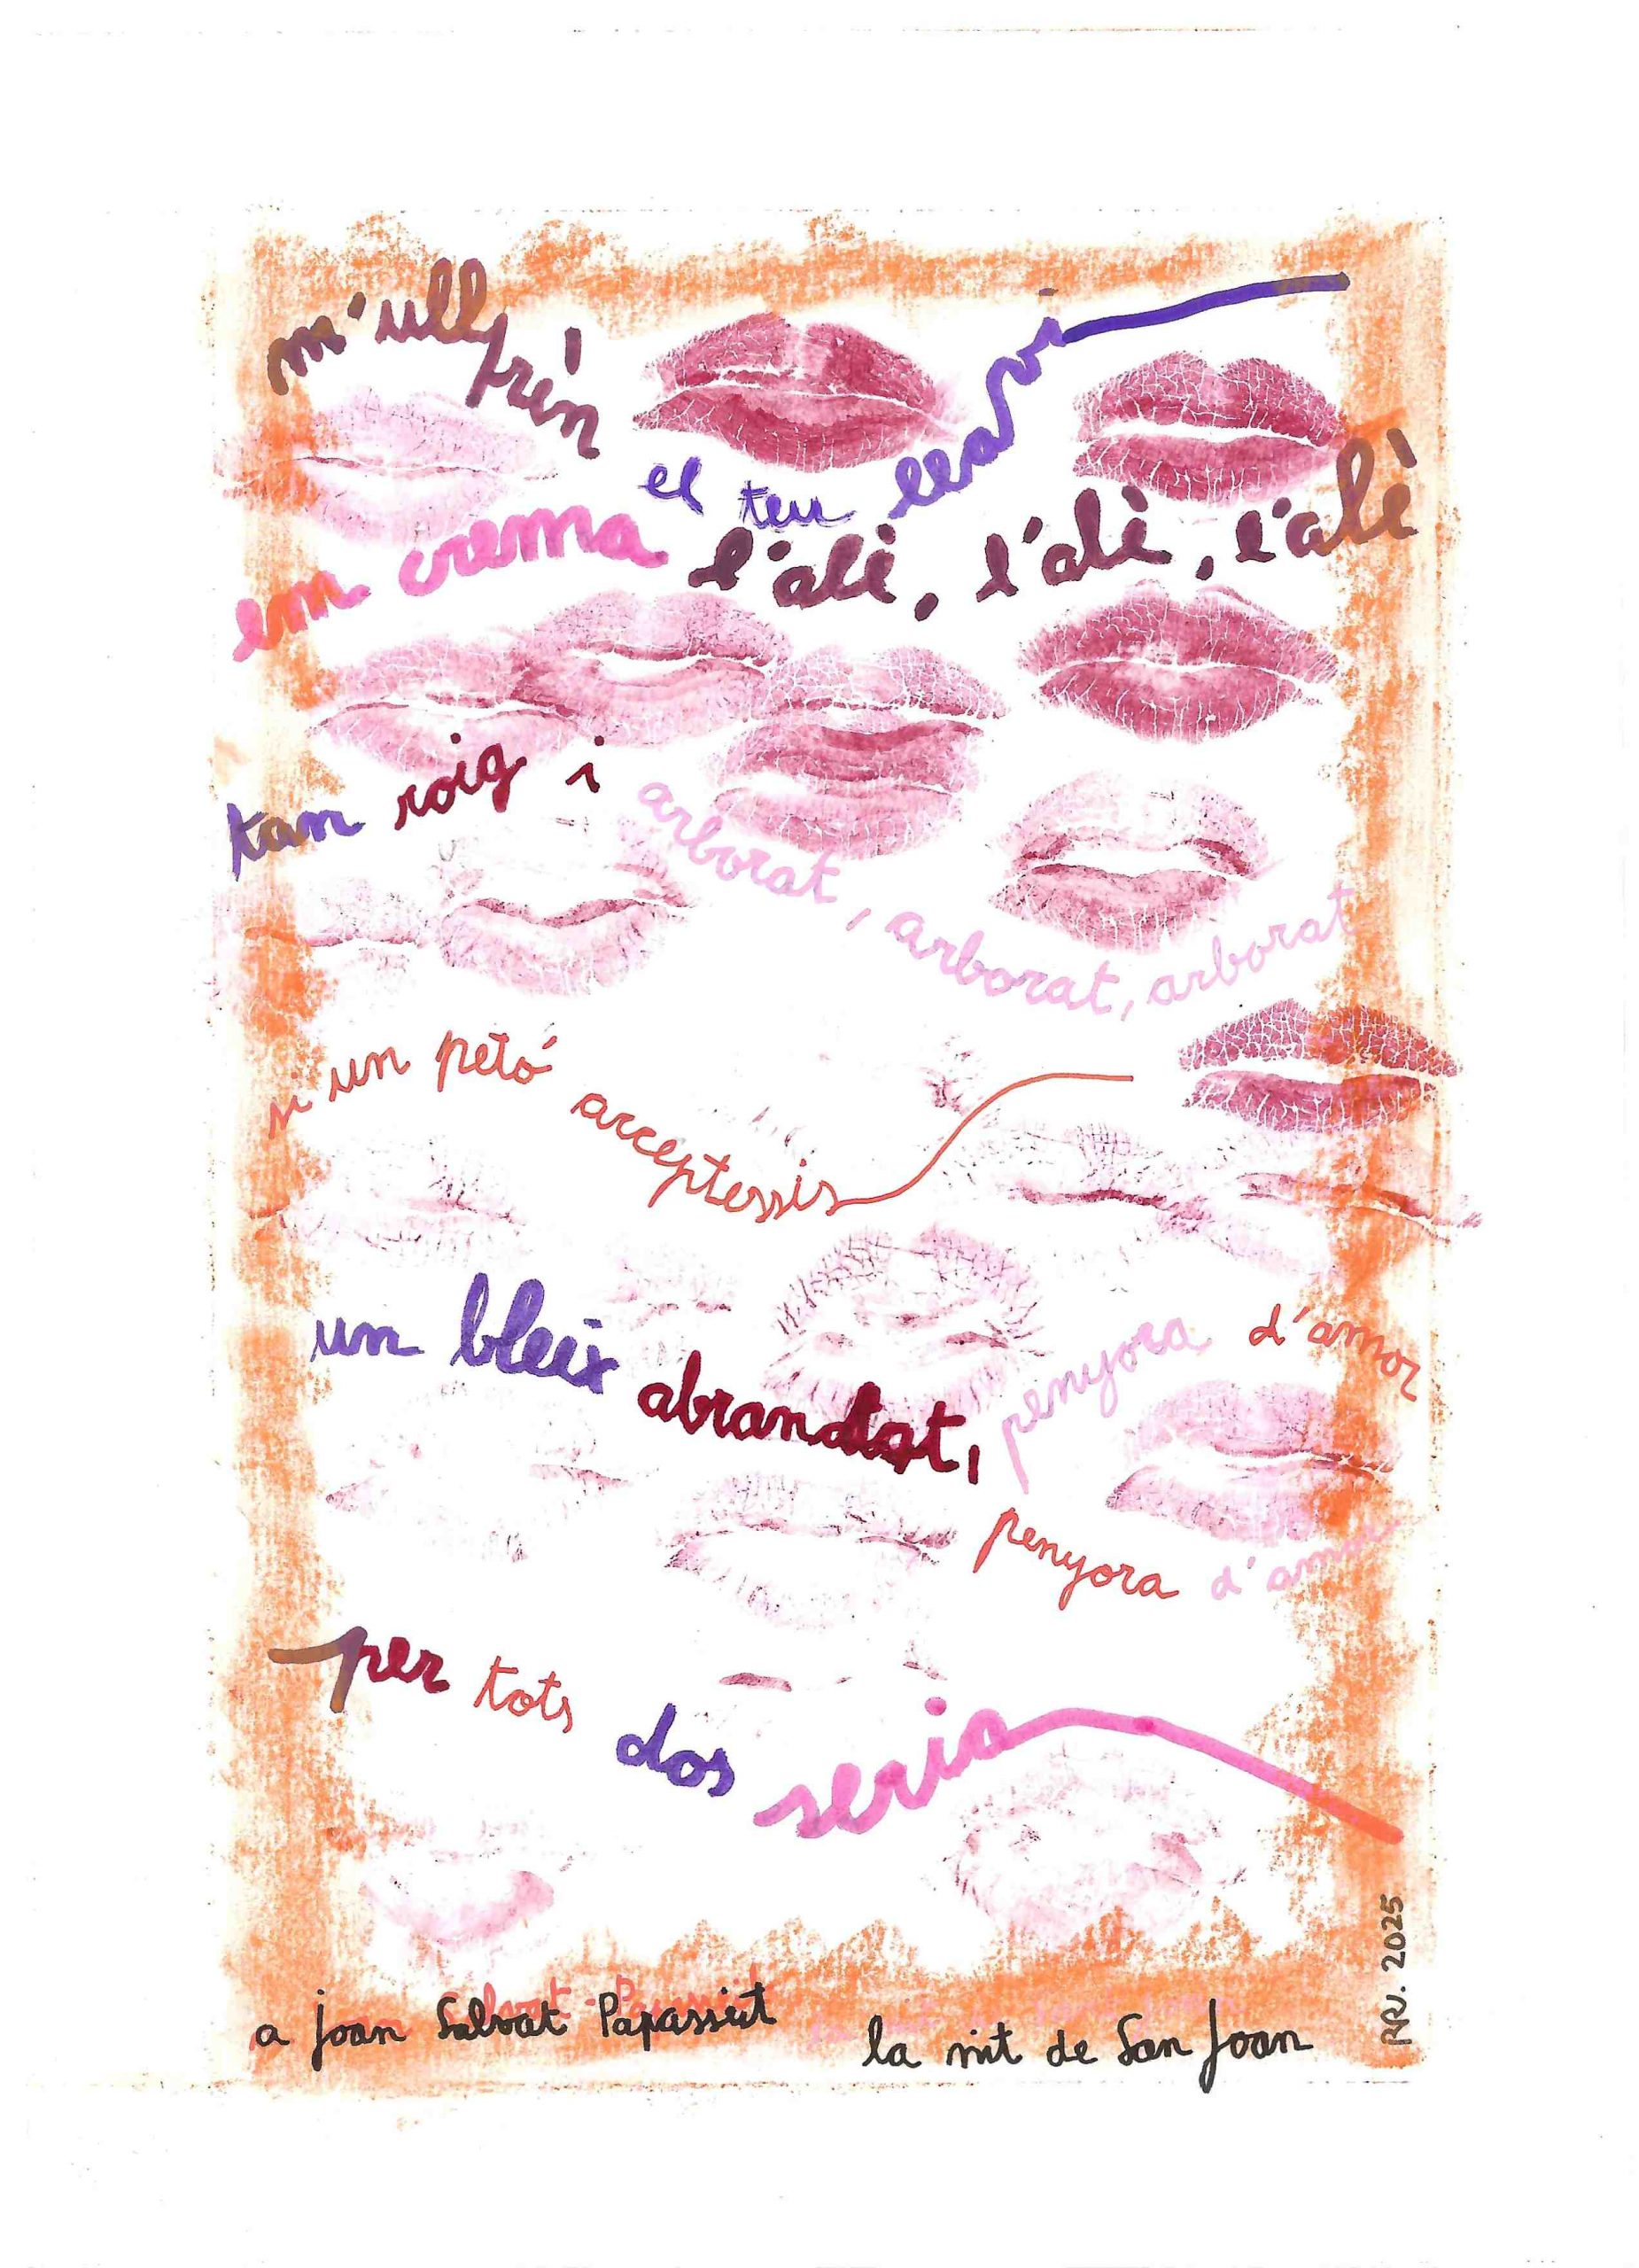 m'ullprèn el teu llavi
em crema l'alè, l'alè, l'alè
tan roig i arborat, arborat, arborat
si un petó acceptessis
un bleix abrandat, penyora d'amor
penyora d'amor
per tots dos seria
a Joan Salvat Papasseit
la nit de San Joan
RRV. 2025